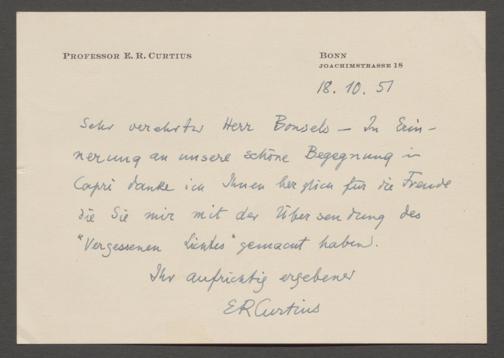 PROFESSOR E. R. CURTIUS
BONN
JOACHIMSTRASSE 18
18. 10. 51
Sehr verehrter Herr Bonsels – In Erin-
nerung an unsere schöne Begegnung in
Capri danke ich Ihnen herzlich für die Freude
die Sie mir mit der Übersendung des
"Vergessenen Lichtes" gemacht haben.
Ihr aufrichtig ergebener
ERCurtius